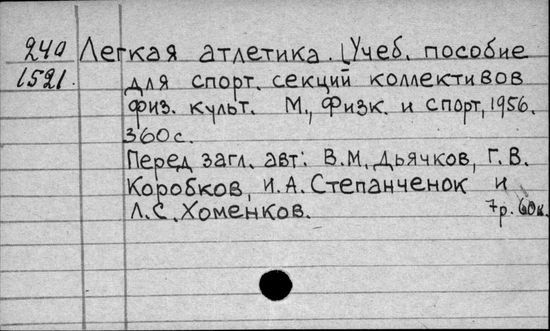 240 Легкая атлетика. [Учеб. пособие
1521. для спорт. секций коллективов
физ. культ. М., Физк. и спорт, 1956.
360 с.
Перед загл. авт: В.М. Дьячков, Г.В.
Коробков, И.А. Степанченок и
Л.С. Хоменков. 7р. 60к.